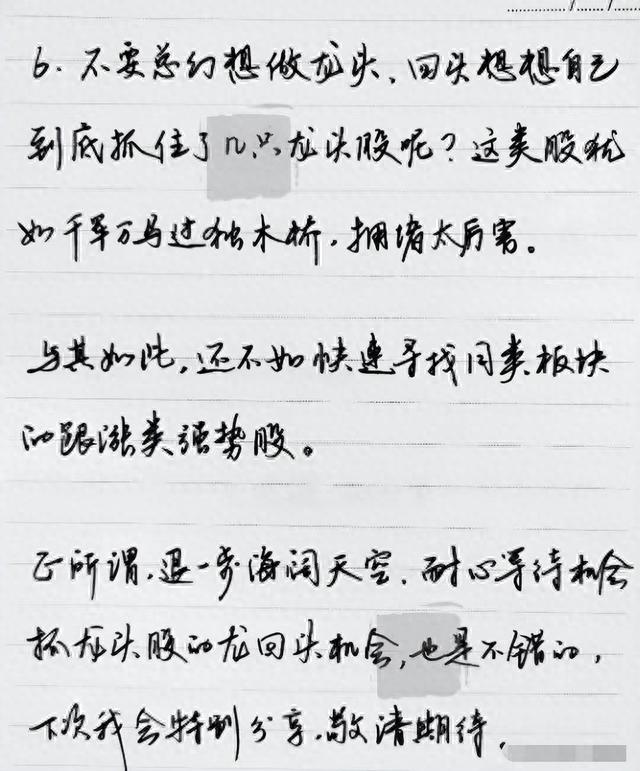 6. 不要总幻想做龙头,回头想想自己
到底抓住了几只龙头股呢?这类股犹
如千军万马过独木桥,拥堵太厉害。
与其如此,还不如快速寻找同类板块
的跟涨类强势股。
正所谓,退一步海阔天空,耐心等待机会
抓龙头股的龙回头机会,也是不错的,
下次我会特别分享,敬请期待,